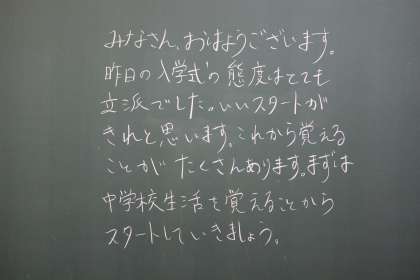 みなさん、おはようございます。
昨日の入学式の態度はとても
立派でした。いいスタートが
きれと思います。これから覚える
ことがたくさんあります。まずは
中学校生活を覚えることから
スタートしていきましょう。